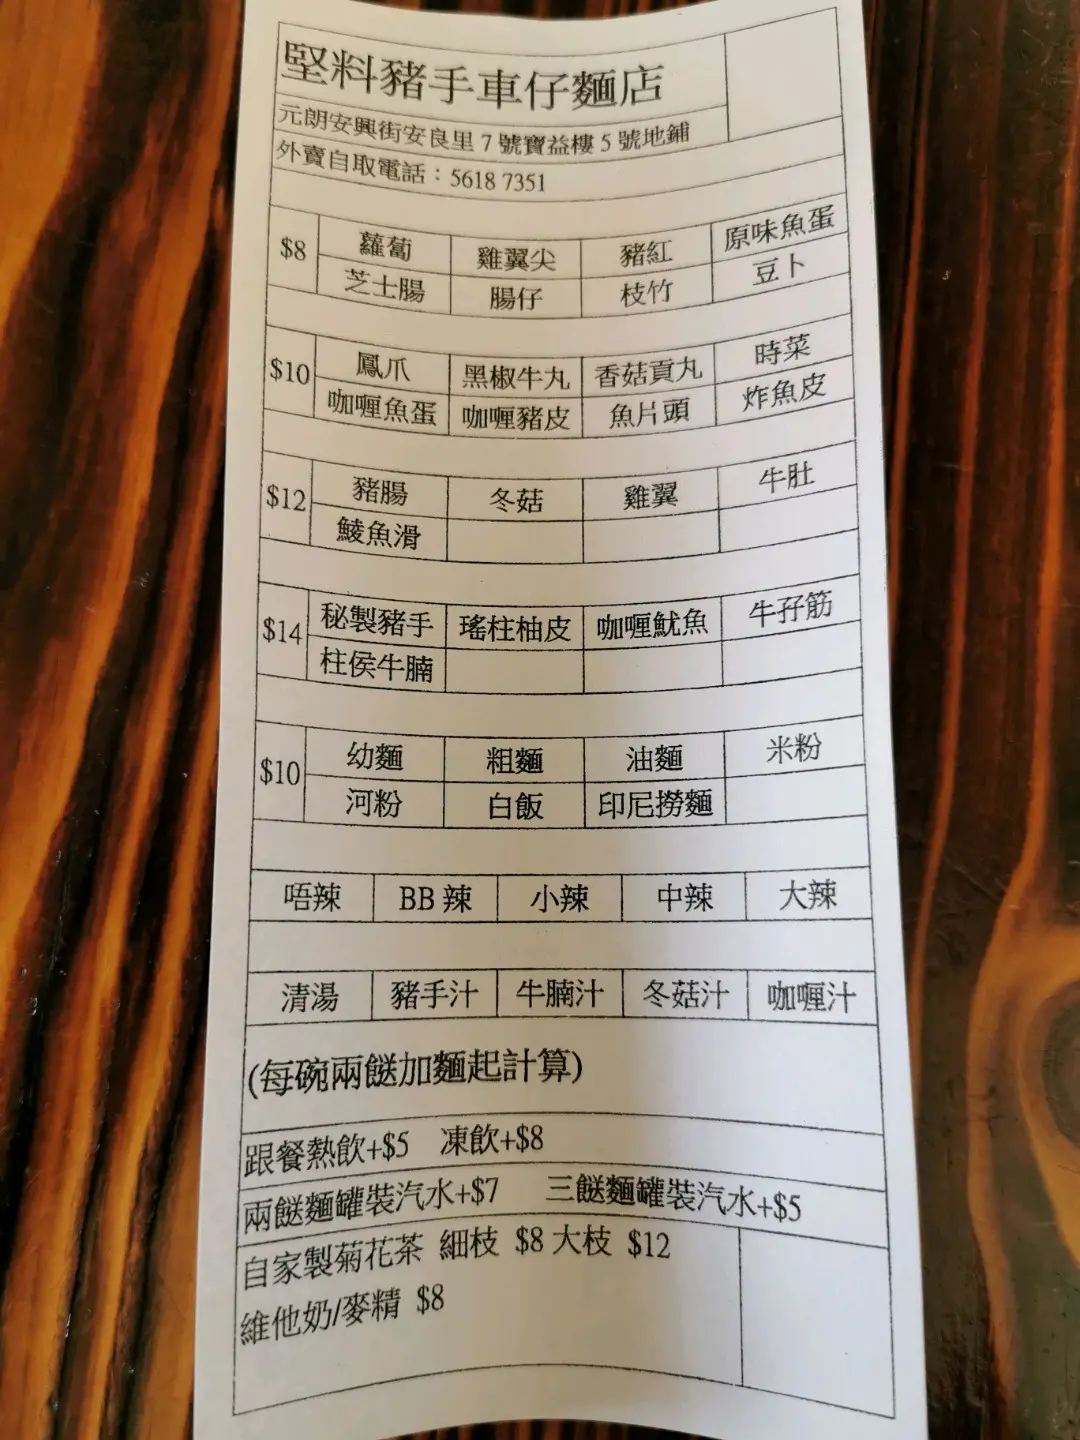 堅料豬手車仔麵店
元朗安興街安良里 7 號寶益樓 5 號地鋪
外賣自取電話：5618 7351
$8 蘿蔔 雞翼尖 豬紅 原味魚蛋
芝士腸 腸仔 枝竹 豆卜
$10 鳳爪 黑椒牛丸 香菇貢丸 時菜
咖喱魚蛋 咖喱豬皮 魚片頭 炸魚皮
$12 豬腸 冬菇 雞翼 牛肚
鯪魚滑
$14 秘製豬手 瑤柱柚皮 咖喱魷魚 牛孖筋
柱侯牛腩
$10 幼麵 粗麵 油麵 米粉
河粉 白飯 印尼撈麵
唔辣 BB 辣 小辣 中辣 大辣
清湯 豬手汁 牛腩汁 冬菇汁 咖喱汁
(每碗兩餸加麵起計算)
跟餐熱飲+$5 凍飲+$8
兩餸麵罐裝汽水+$7 三餸麵罐裝汽水+$5
自家製菊花茶 細枝 $8 大枝 $12
維他奶/麥精 $8